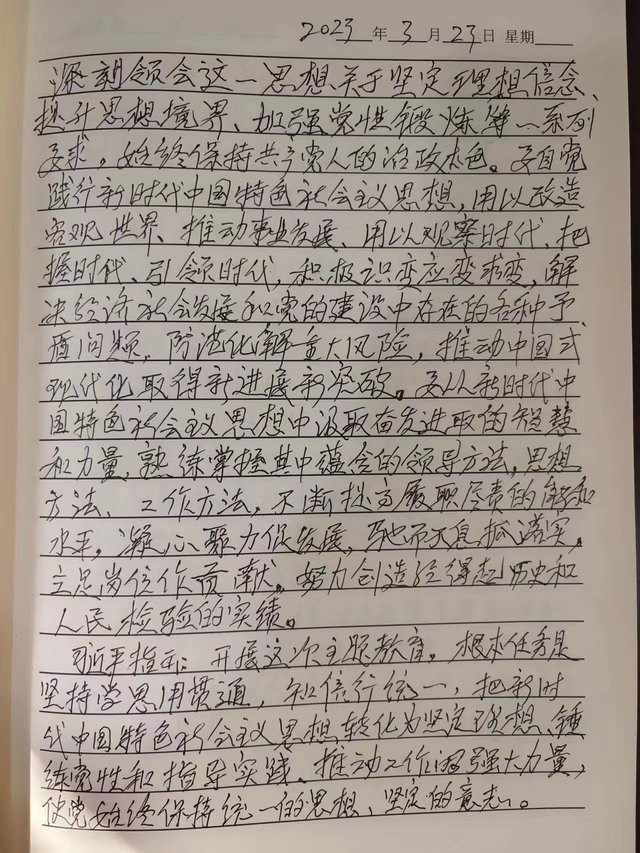 2023年3月23日 星期
深刻领会这一思想关于坚定理想信念、
提升思想境界、加强党性锻炼等一系列
要求，始终保持共产党人的政治本色。要自觉
践行新时代中国特色社会主义思想，用以改造
客观世界、推动事业发展、用以观察时代、把
握时代、引领时代，积极识变应变求变，解
决经济社会发展和党的建设中存在的各种矛
盾问题，防范化解重大风险，推动中国式
现代化取得新进展新突破。要从新时代中
国特色社会主义思想中汲取奋发进取的智慧
和力量，熟练掌握其中蕴含的领导方法，思想
方法、工作方法，不断提高履职尽责的能和
水平，凝心聚力促发展，驰而不息抓落实，
立足岗位作贡献，努力创造经得起历史和
人民检验的实绩。
习近平指示：开展这次主题教育，根本任务是
坚持学思用贯通，知信行统一，把新时
代中国特色社会主义思想转化为坚定理想、锤
练党性和指导实践、推动工作的强大力量，
使党始终保持统一的思想、坚定的意志。